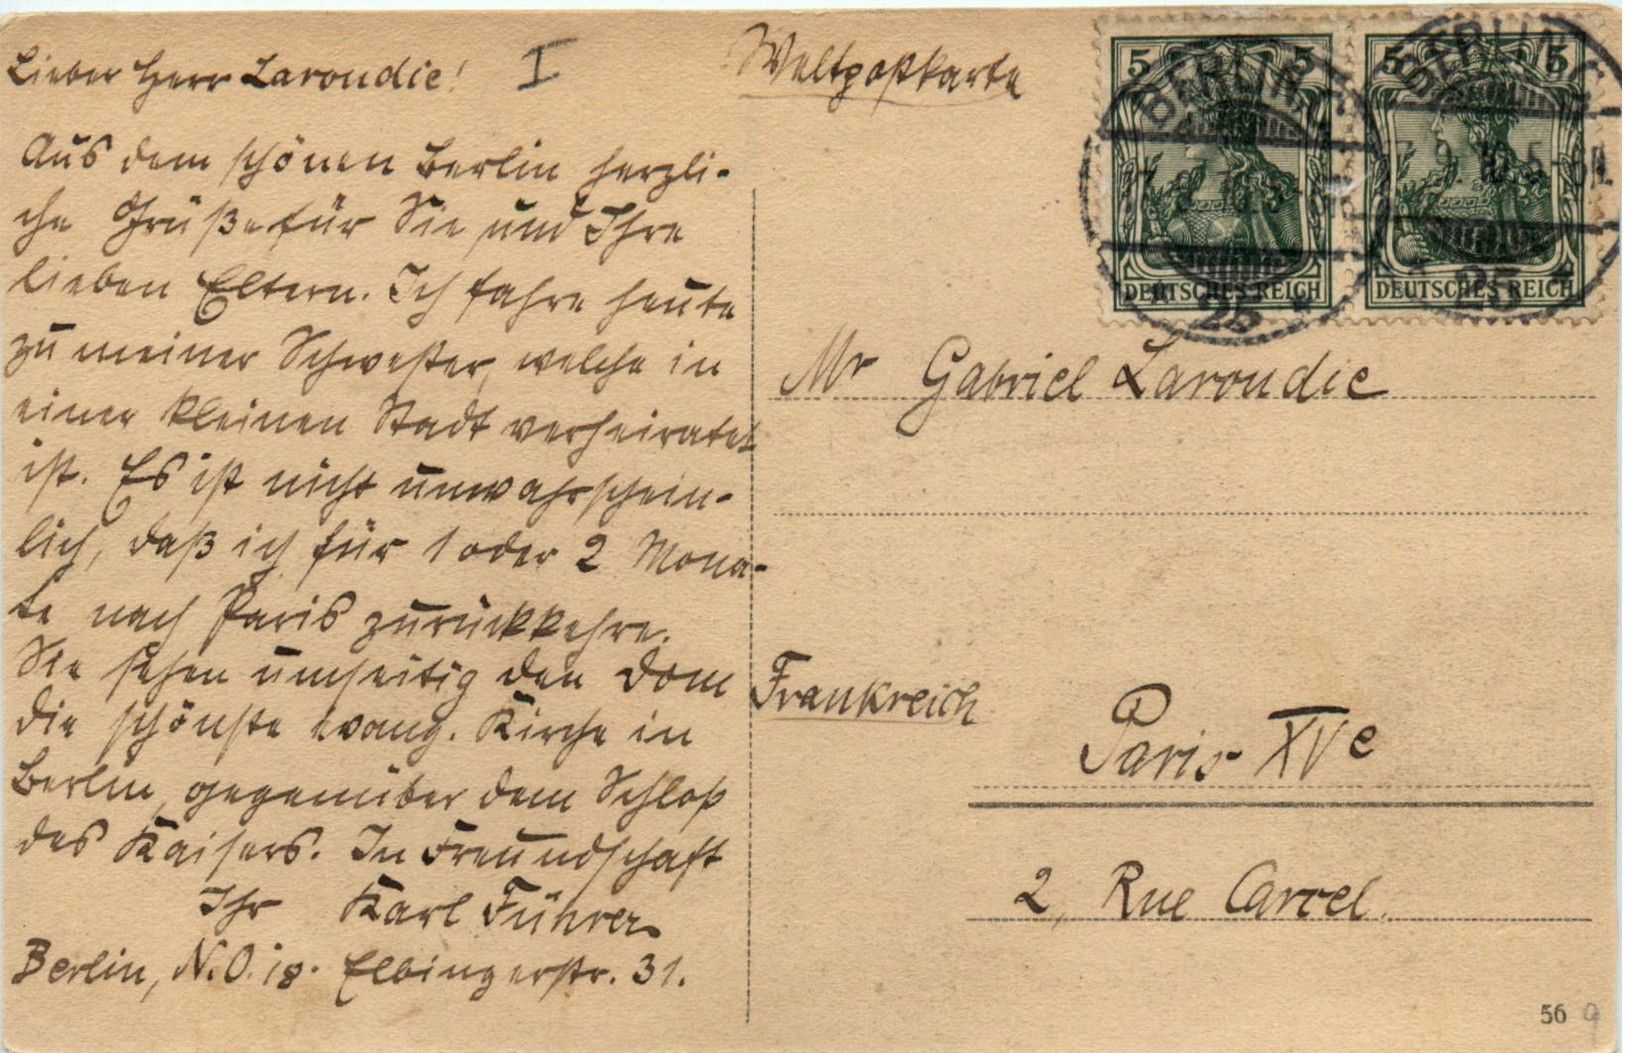 Lieber Herr Laroudie!
I
Aus dem schönen Berlin herzli-
che Grüße für Sie und Ihre
lieben Eltern. Ich fahre heute
zu meiner Schwester, welche in
einer kleinen Stadt verheiratet
ist. Es ist nicht unwahrschein-
lich, daß ich für 1 oder 2 Mona-
te nach Paris zurückkehre.
Sie sehen umseitig den Dom
die schönste evang. Kirche in
Berlin, gegenüber dem Schloß
des Kaisers. In Freundschaft
Ihr Karl Führer
Berlin, N.O. 18. Elbingerstr. 31.
Weltpostkarte
5 5
DEUTSCHES REICH
5 5
DEUTSCHES REICH
BERLIN
25
BERLIN
7.9.10.5-6N.
25
Mr Gabriel Laroudie
Frankreich
Paris XVe
2, Rue Carcel.
56